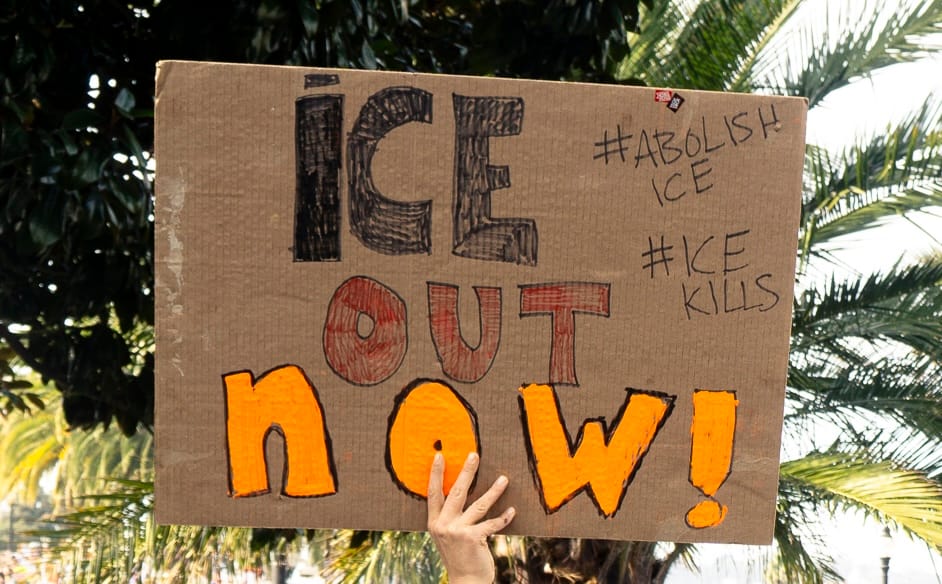 ICE
OUT
nOW!
#ABOLISH
ICE
#ICE
KILLS